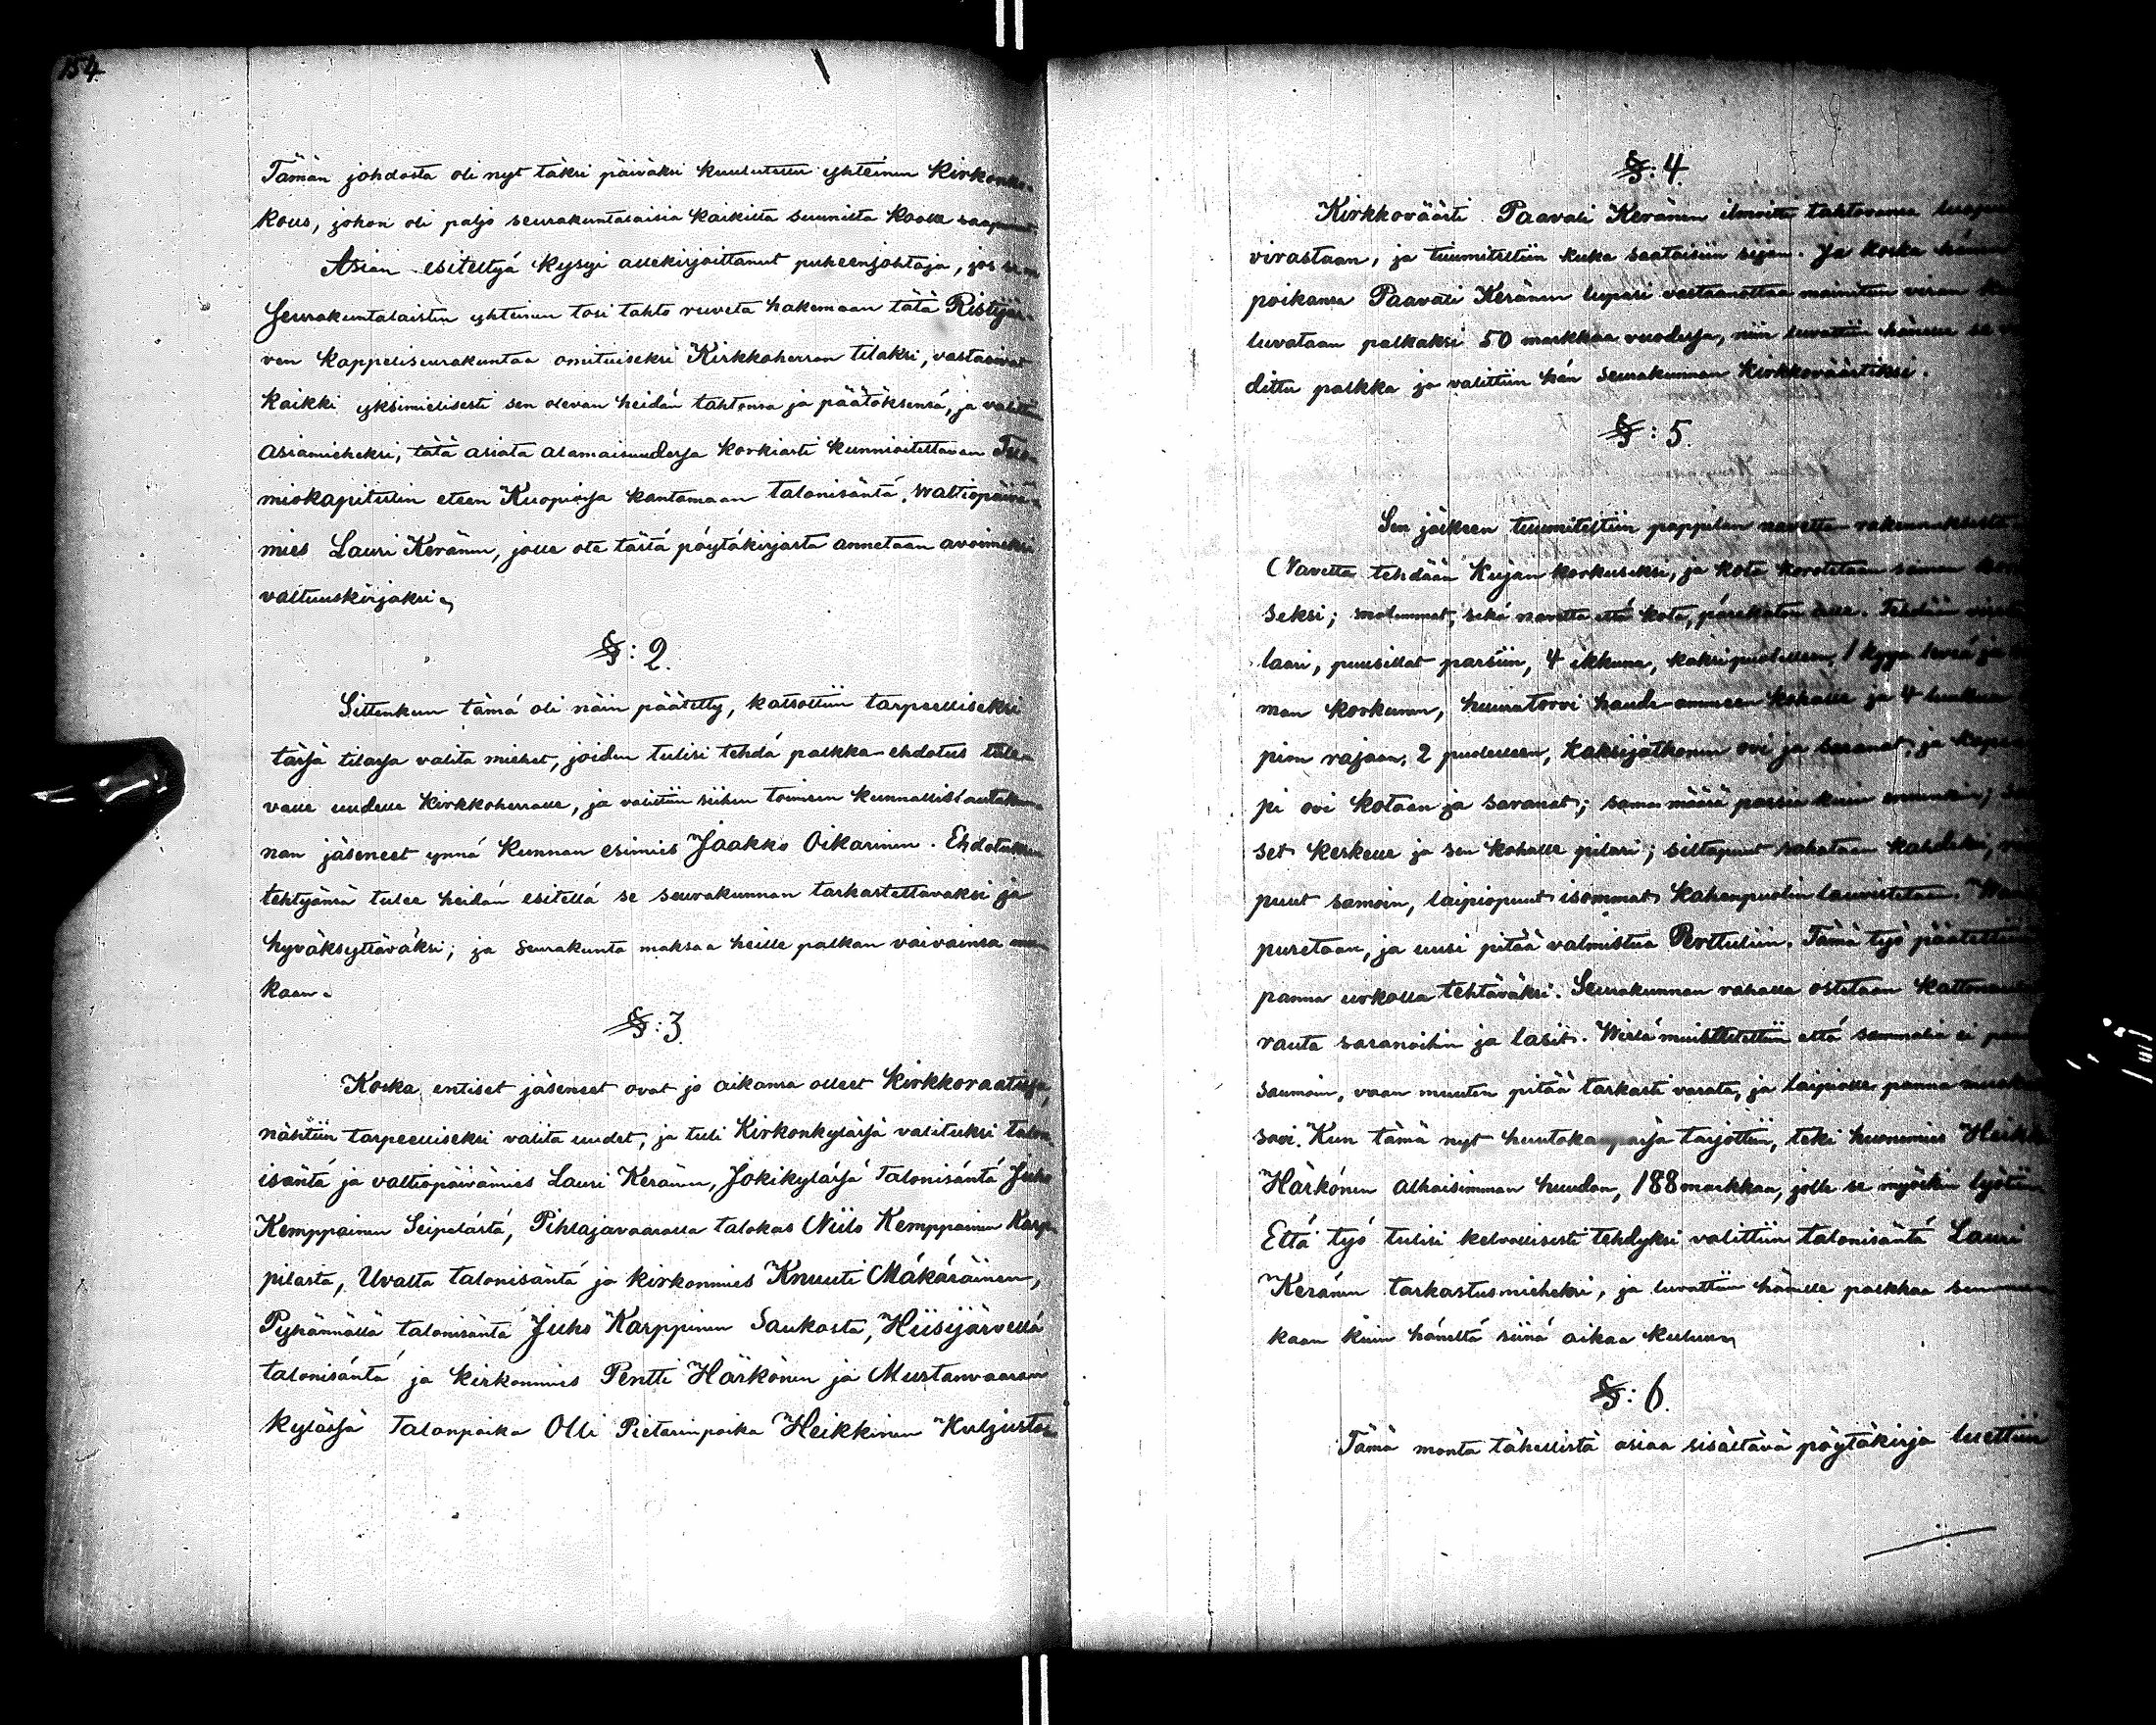 154
Tämän johdosta oli nyt täksi päiväksi kuulutettu yhteinen Kirkonko-
kous, johon oli paljo seurakuntalaisia kaikilta suunilta koolle saapunut
Asian esiteltyä kysyi allekirjoittanut puheenjohtaja, jos se on
Seurakuntalaisten yhteinen tosi tahto ruveta hakemaan tätä Ristijär-
ven kappeliseurakuntaa omituiseksi Kirkkoherran tilaksi, vastasivat
Kaikki yksimielisesti sen olevan heidän tahtonsa ja päätöksensä, ja valittiin
asiamieheksi, tätä asiata asamaisuudessa korkiasti kunnioitettavan Tuo-
miokapitulin eteen Kuopiossa kantamaan talonisäntä, waltiopäivä-
mies Lauri Keränen, jolle ote tästä pöytäkirjasta annetaan avoimeksi
valtuuskirjaksi.
§: 2.
Sittenkun tämä oli näin päätetty, katsottiin tarpeelliseksi
tässä tilassa valita miehet, joiden tulisi tehdä palkka-ehdotus tule-
valle uudelle Kirkkoherralle, ja valittiin siihen toimeen kunnallislautakun-
nan jäseneet ynnä Kunnan esimies Jaakko Oikarinen. Ehdotuksen
tehtyänsä tulee heidän esitellä se seurakunnan tarkastettavaksi ja
hyväksyttäväksi; ja Seurakunta maksaa heille palkan vaivainsa mu-
kaan.
§: 3.
Koska entiset jäseneet ovat jo aikansa olleet Kirkkoraatissa,
nähtiin tarpeelliseksi valita uudet, ja tuli Kirkonkylässä valituksi talon-
isäntä ja valtiopäivämies Lauri Keränen, Jokikylässä Talonisäntä Juho
Kemppainen Seipelästä, Pihlajavaaralla talokas Niilo Kemppainen Karp-
pilasta, Uvalta talonisäntä ja kirkonmies Knuuti Mäkäräinen,
Pyhännällä talonisäntä Juho Karppinen Saukosta, Hiisijärvellä
talonisäntä ja kirkonmies Pentti Härkönen ja Mustanvaaran
kylässä Talonpoika Olli Pietarinpoika Heikkinen Kuljusta.
§: 4.
Kirkkoväärti Paavali Keränen ilmoitti tahtovansa luopua
virastaan, ja tuumiteltiin kuka saataisiin sijan. Ja koska hänen
poikansa Paavali Keränen lupasi vastaanottaa mainitun viran
luvataan palkaksi 50 markkaa vuodessa, niin luvattiin hänelle se
dittu palkka ja valittiin hän Seurakunnan Kirkkoväärtiksi.
§: 5.
Sen jälkeen tuumiteltiin pappilan navetta rakennuksesta
(Navetta tehdään Kujan korkuseksi, ja kota korotetaan saman
seksi; molemmat, sekä navetta että kota, pärekaton alle. Tehdään
laari, puusillat parsiin, 4 ikkuna, kaksi puolelleen, 1 kyyn. leviä ja
man korkunen, huuratorvi haude-ammeen kohalle ja 4 luukkua
pion rajaan, 2 puolelleen, kaksijatkonen ovi ja saranat, ja
pi ovi kotaan ja saranat; sama määrä parsia kuin ennenkin;
set keskelle ja sen kohalle pilari; siltapuut sahataan kahdeksi,
puut samoin, laipiopuut isommat kahenpuolin lauvistetaan.
puretaan, ja uusi pitää valmistua Perttuliin. Tämä työ päätettiin
panna urkalla tehtäväksi. Seurakunnan rahalla ostetaan
rauta saranoihin ja lasit. Wielä muisttutettiin että sammalia ei
saumoin, vaan muuten pitää tarkasti varata, ja laipiolle panna
savi. Kun tämä nyt huutokaupassa tarjottiin, teki huonemies Heikki
Härkönen alhaisimman huudon, 188 markkaa, jolle se myöskin lyötiin
Että työ tulisi kelvollisesti tehdyksi valittiin talonisäntä Lauri
Keränen tarkastusmieheksi, ja luvattiin hänelle palkkaa sen mu-
kaan kuin häneltä siinä aikaa kuluu.
§: 6.
Tämä monta tähellistä asiaa sisältävä pöytäkirja luettiin